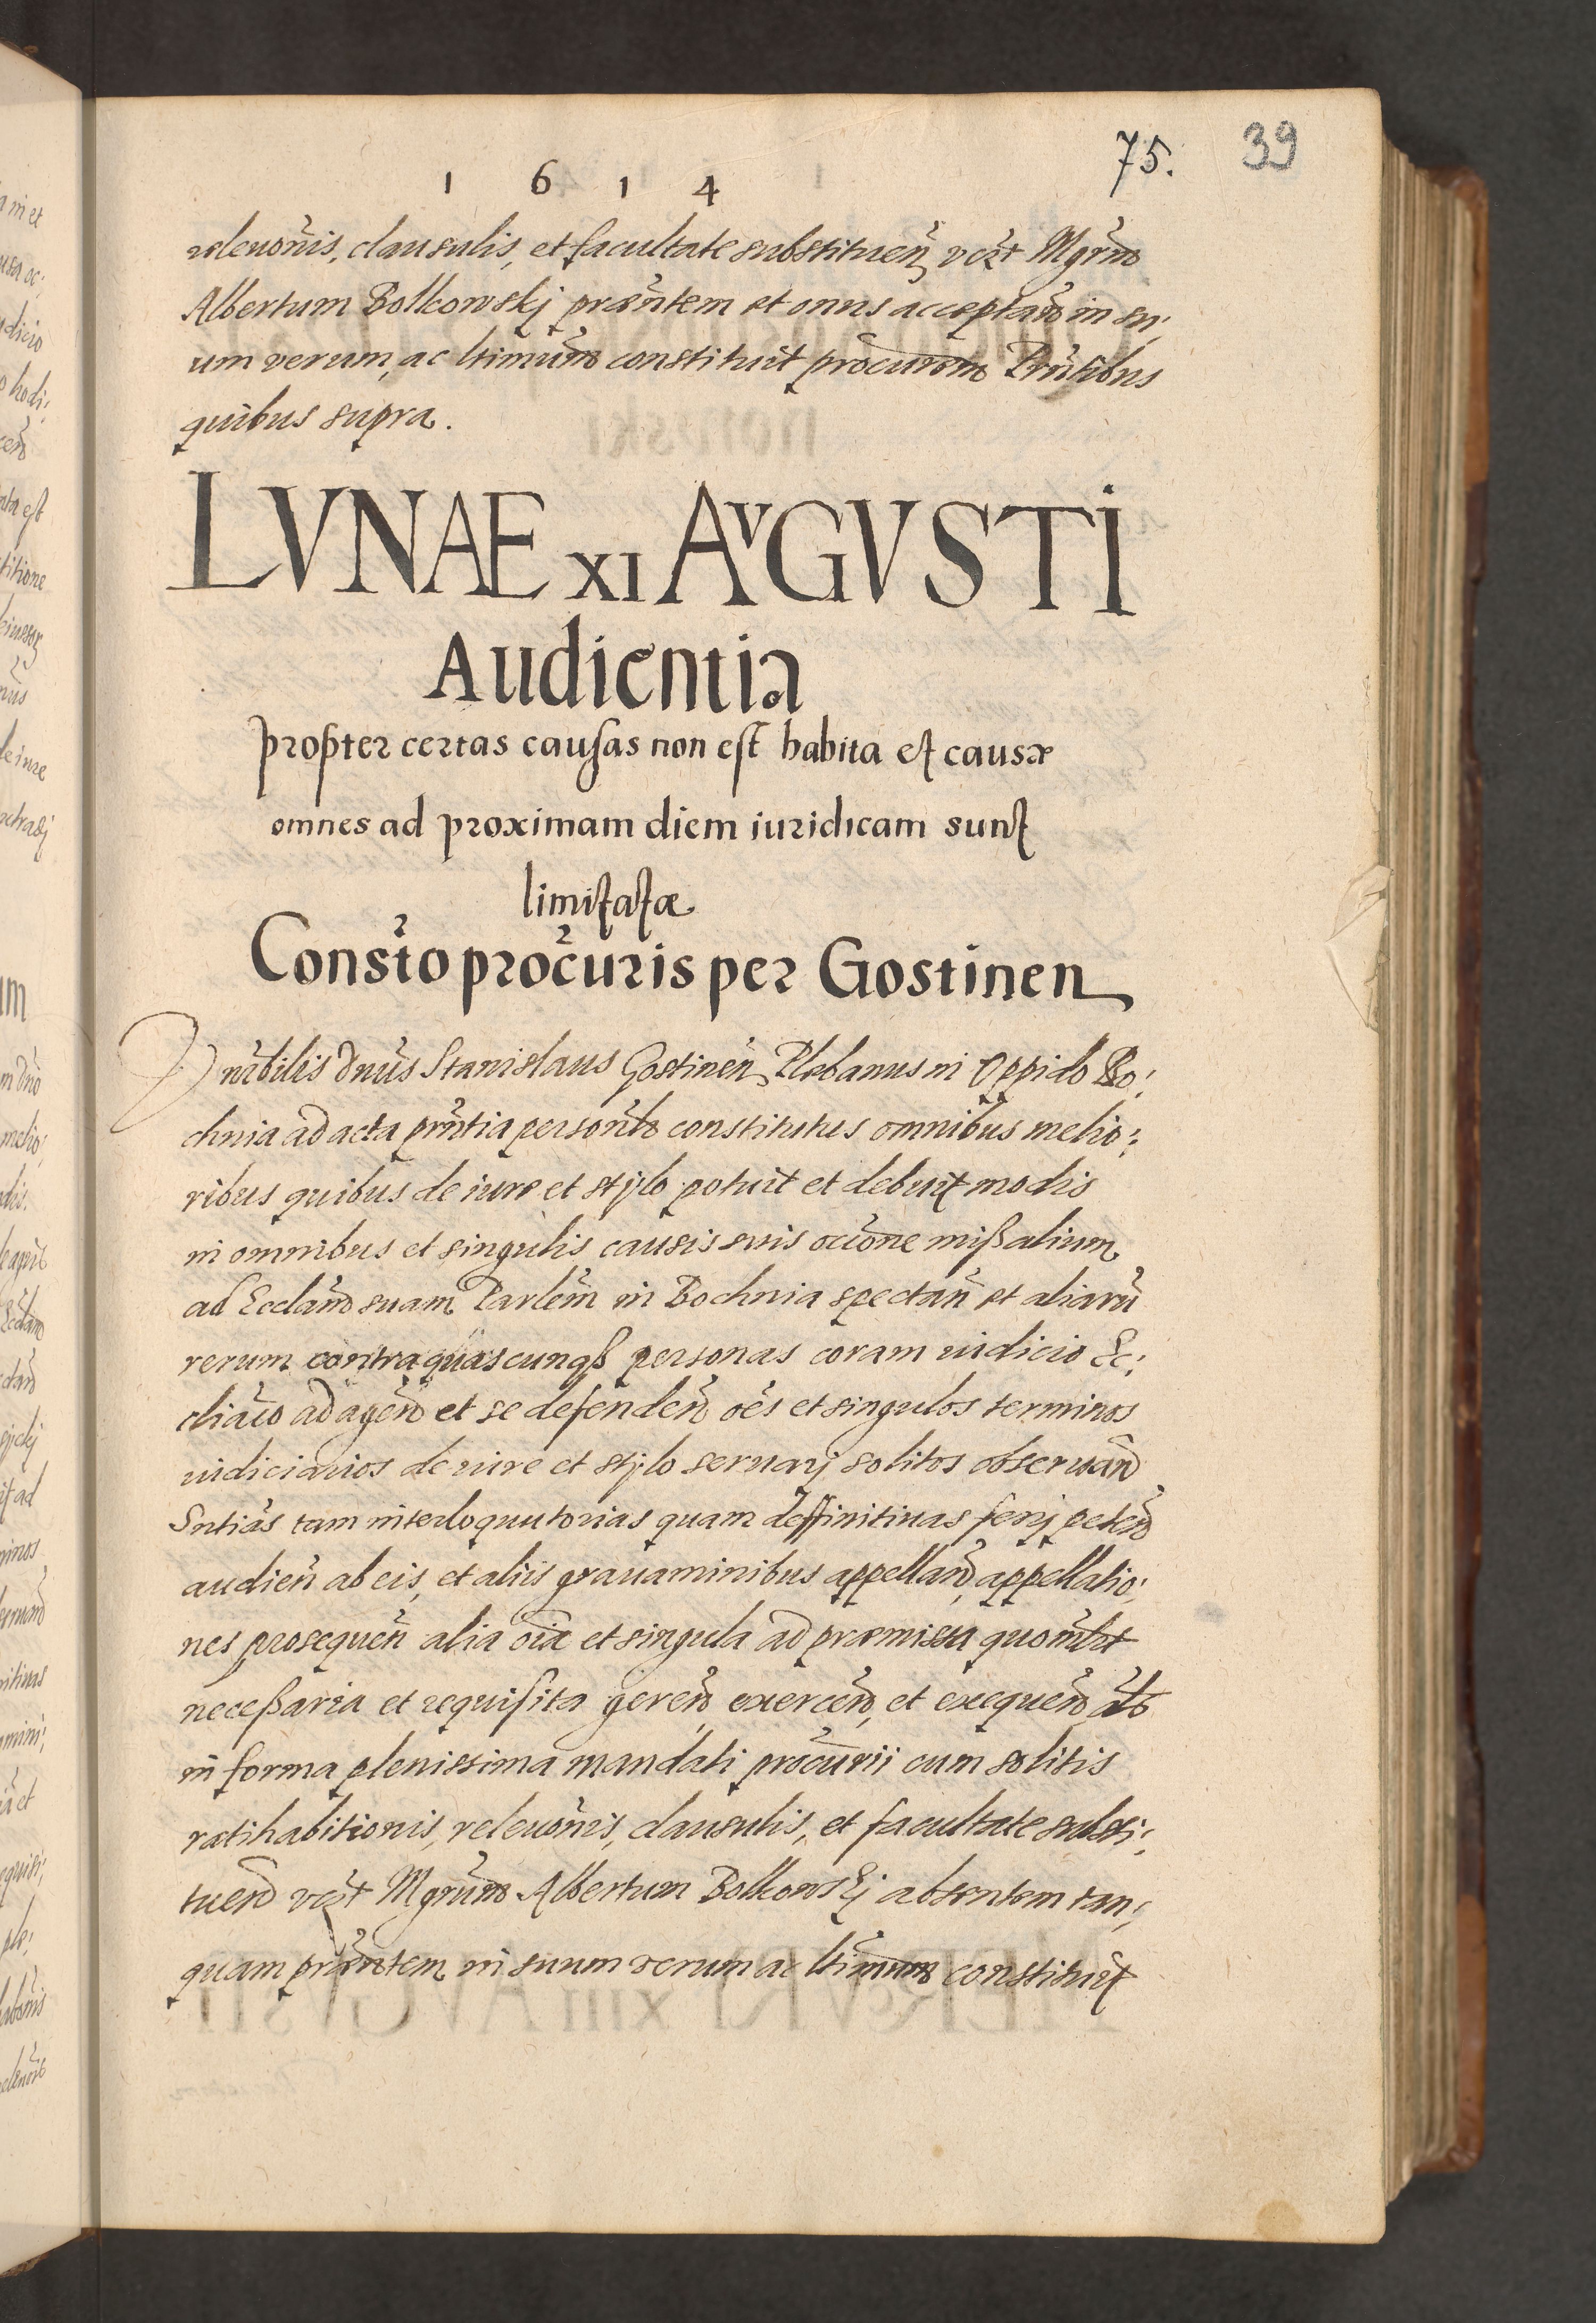 75. 39
1 6 1 4
releuoñis, clausulis, et facultate substitueñ, vẽzt Mgrũm
Albertum Bolkowskj præñtem et onus acceptañ in su;
um verum, ac ltimũm constituit procũrem Prñtibus
quibus supra.
LVNAE XI AVGVSTI
Audientia
propter certas causas non est habita et causæ
omnes ad proximam diem iuridicam sunt
limitatæ
Consto procuris per Gostinen
Vñrbilis Dnũs Stanislaus Gostineñ Plebanus in Oppido Bo;
chnia ad acta prñtia persoñlr constitutus omnibus melio;
ribus quibus de iure et stylo potuit et debuit modis
in omnibus et singulis causis suis oc̃cione mißalium
ad Ecclam̃ suam Parlem̃ in Bochnia spectañ et aliarũ
rerum contra quascunqß personas coram iudicio Ec;
cliãco ad ageñd et se defendeñ oẽs et singulos terminos
iudiciarios de iure et stylo seruarj solitos obseruañd
Sntiãs tam interloquutorias quam deffinitiuas ferrj peteñd
audieñ ab eis, et aliis grauaminibus appellañd, appellatio;
nes prosequeñ alia oĩa et singula ad præmissa quomlt̃
neceßaria et requisita gereñd exerceñd, et exequeñd
in forma plenissima mandati procũrii cum solitis
ratihabitionis, releuoñis, clausulis, et facultate substi;
tueñd vẽzt Mgrũm Albertum Bolkowskj absentem tan;
quam præñtem in suum verum ac ltimũm constituit